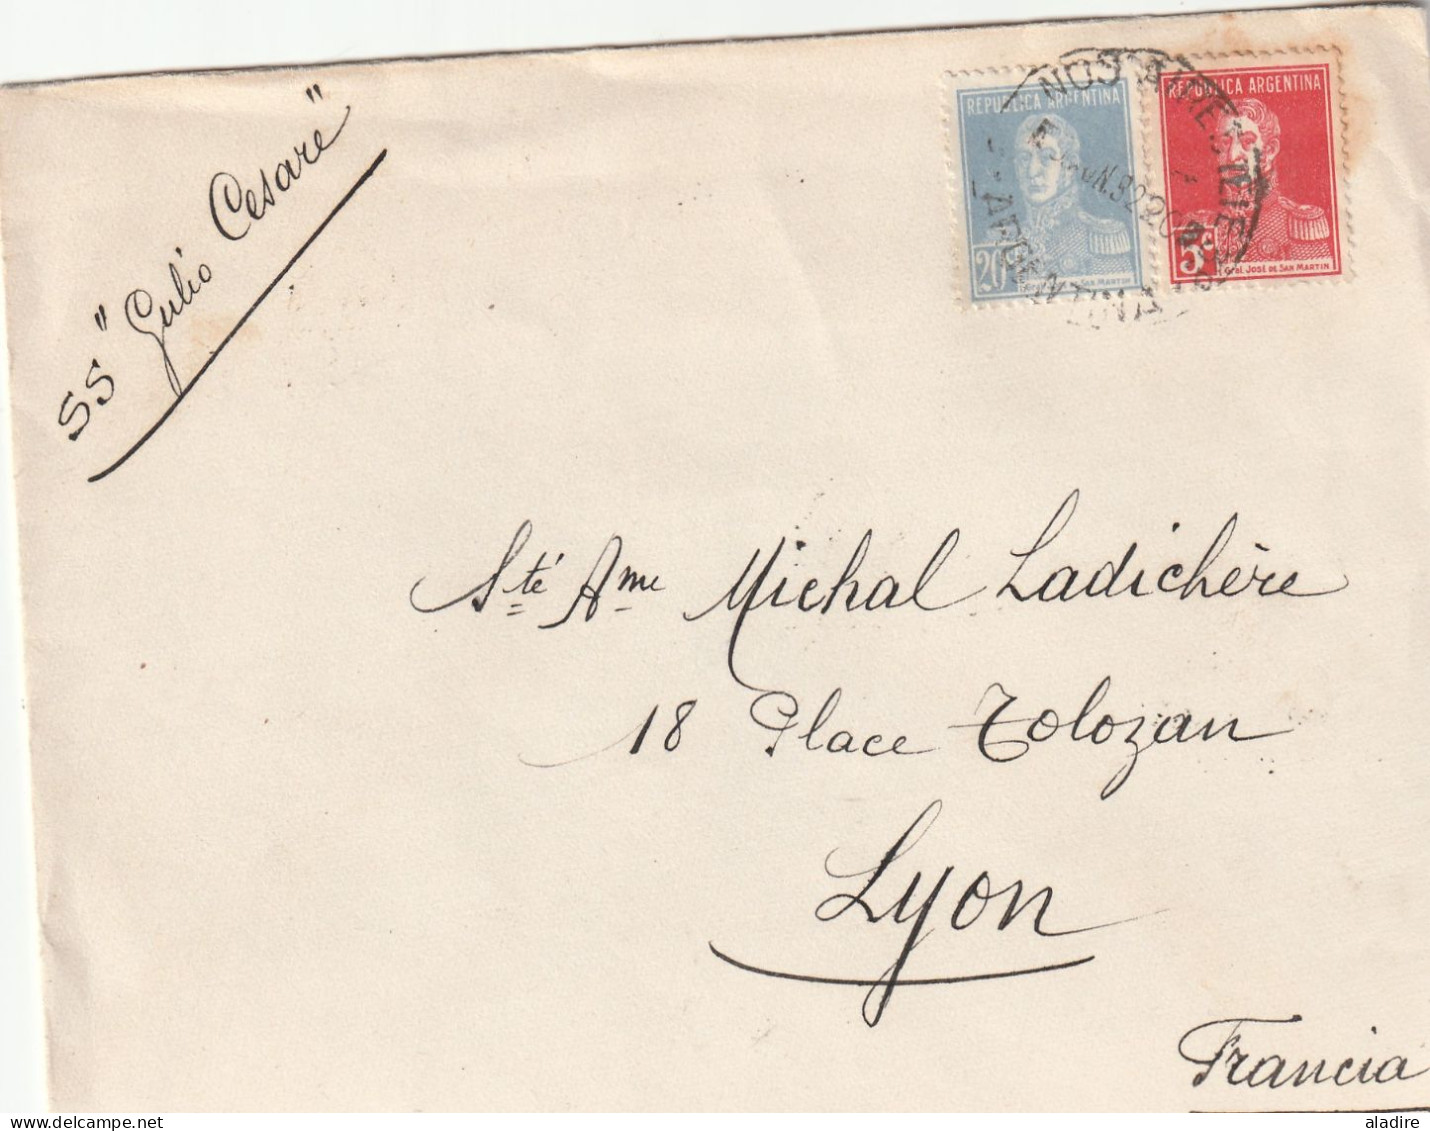 SS "Gulio Cesare"
REPUBLICA ARGENTINA
20
SAN MARTIN
REPUBLICA ARGENTINA
5c
Gral. JOSÉ DE SAN MARTIN
NOS AIRES
ARGENTINA
Sté Ame Michal Ladichère
18 Place Tolozan
Lyon
Francia
delcampe.net
aladire